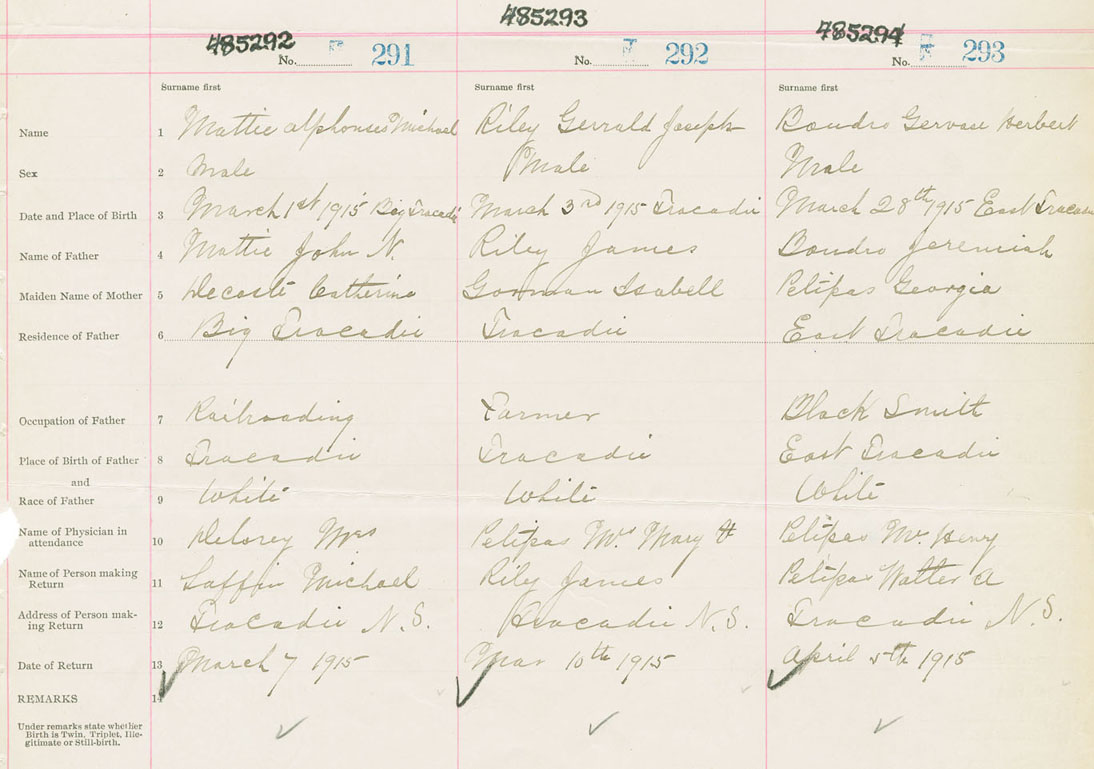 485292 485293 485294
No. 291 No. 292 No. 293
Surname first Surname first Surname first
Name 1 Mattie alphonies Michael Riley Gerrald Joseph Boudro Gervase Herbert
Sex 2 Male Male Male
Date and Place of Birth 3 March 1st 1915 Big Tracadie March 3rd 1915 Tracadie March 28th 1915 East Tracadie
Name of Father 4 Mattie John N. Riley James Boudro Jeremiah
Maiden Name of Mother 5 Decoste Catherine Gorman Isabell Petipas Georgia
Residence of Father 6 Big Tracadie Tracadie East Tracadie
Occupation of Father 7 Railroading Farmer Black Smith
Place of Birth of Father 8 Tracadie Tracadie East Tracadie
and
Race of Father 9 White White White
Name of Physician in
attendance 10 Delorey Mrs Petipas Mrs Mary H Petipas Mr. Henry
Name of Person making
Return 11 Laffin Michael Rily James Petipas Walter A
Address of Person mak-
ing Return 12 Tracadie N.S. Tracadie N.S. Tracadie N.S.
Date of Return 13 March 7 1915 Mar 10th 1915 April 5th 1915
REMARKS 14
Under remarks state whether
Birth is Twin, Triplet, Ille-
gitimate or Still-birth.